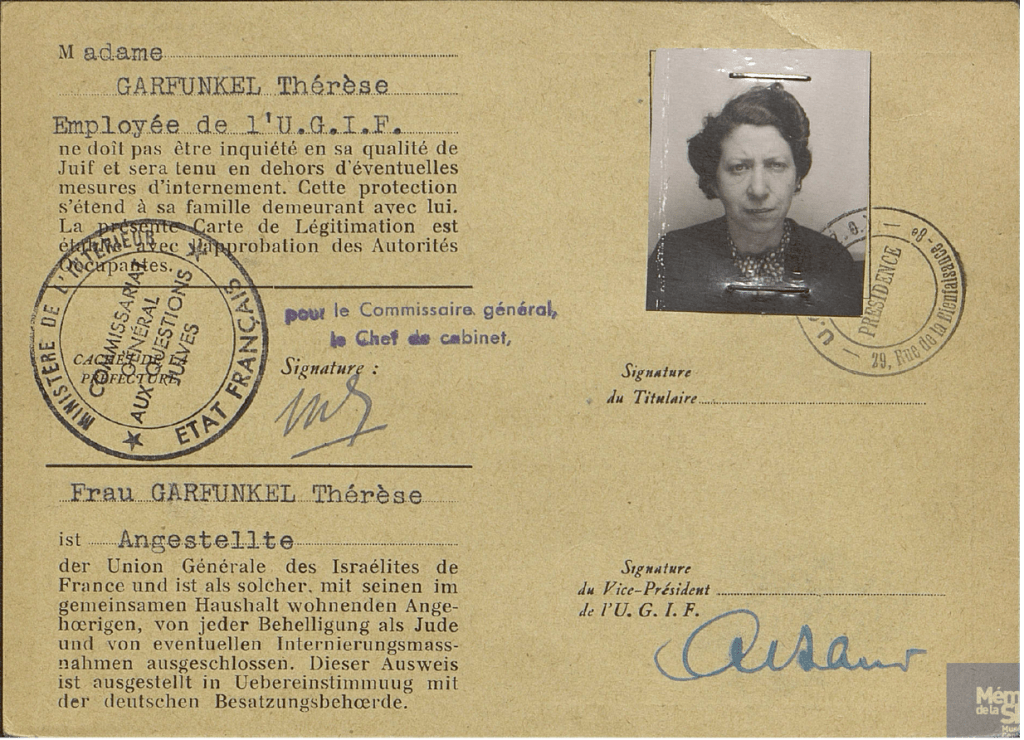 Madame
GARFUNKEL Thérèse
Employée de l'U.G.I.F.
ne doit pas être inquiété en sa qualité de
Juif et sera tenu en dehors d'éventuelles
mesures d'internement. Cette protection
s'étend à sa famille demeurant avec lui.
La présente Carte de Légitimation est
établie avec l'approbation des Autorités
Occupantes.
MINISTÈRE DE L'INTÉRIEUR
ETAT FRANÇAIS
COMMISSARIAT
GÉNÉRAL
AUX QUESTIONS
JUIVES
CACHET DE LA
PRÉFECTURE
pour le Commissaire général,
le Chef de cabinet,
Signature :
Frau GARFUNKEL Thérèse
ist Angestellte
der Union Générale des Israélites de
France und ist als solcher, mit seinen im
gemeinsamen Haushalt wohnenden Ange-
hœrigen, von jeder Behelligung als Jude
und von eventuellen Internierungsmass-
nahmen ausgeschlossen. Dieser Ausweis
ist ausgestellt in Uebereinstimmuug mit
der deutschen Besatzungsbehœrde.
PRÉSIDENCE
29, Rue de la Bienfaisance - 8e
Signature
du Titulaire
Signature
du Vice-Président
de l'U. G. I. F.
Mém
de la